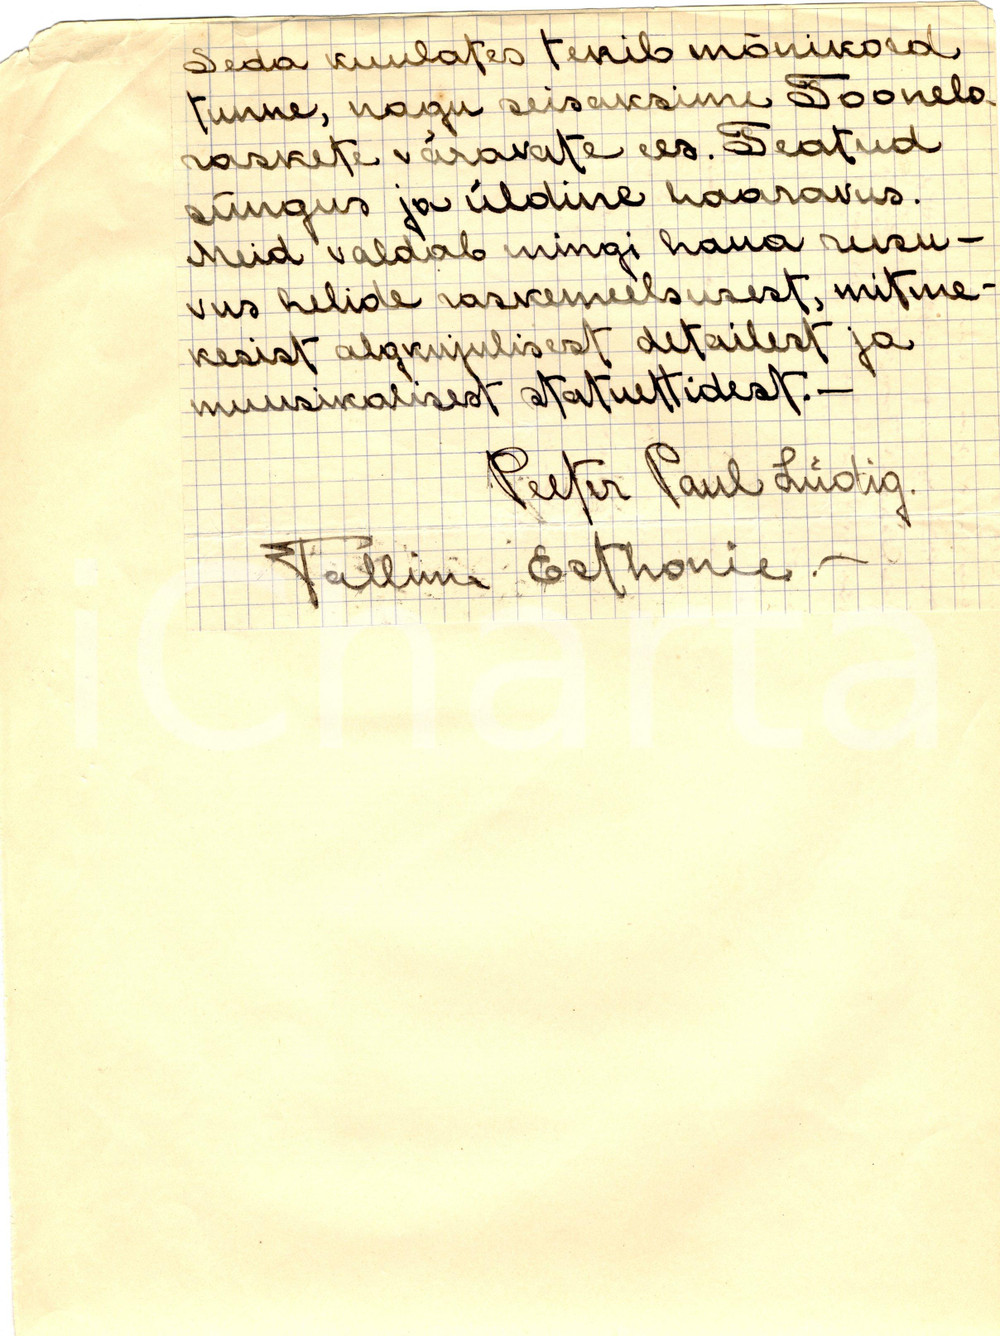 Seda kuulates tekib mõnikord
tunne, nagu seisaksime Toonela
raskete väravate ees. Teatud
süngus ja üldine haaravus.
Meid valdab mingi haua rusu-
vus helide raskemeelsusest, mitme-
kesist algkujulisest detailest ja
muusikalisest statuettidest.—
Peeter Paul Lüdig.
Tallinn Esthonie.—
iCharta